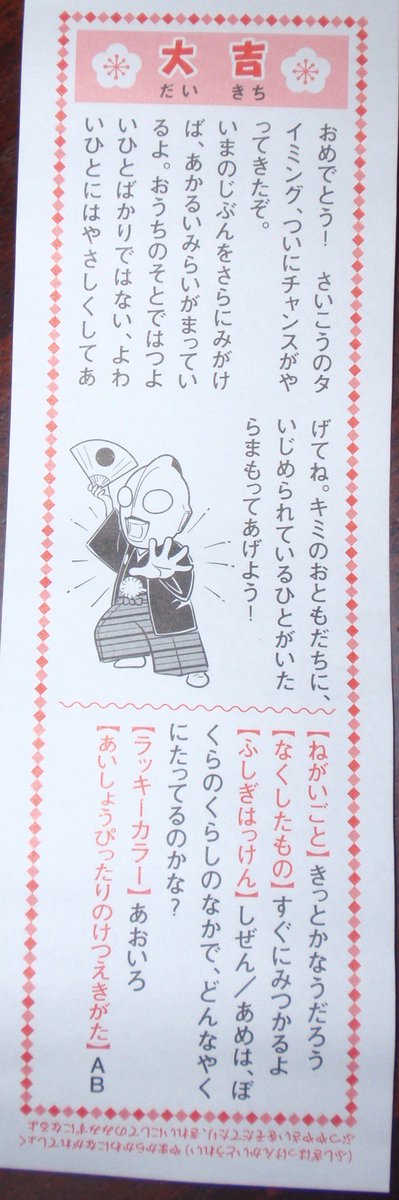 大吉
だいきち
おめでとう！　さいこうのタ
イミング、ついにチャンスがや
ってきたぞ。
いまのじぶんをさらにみがけ
ば、あかるいみらいがまってい
るよ。おうちのそとではつよ
いひとばかりではない、よわ
いひとにはやさしくしてあ
げてね。キミのおともだちに、
いじめられているひとがいた
らまもってあげよう！
【ねがいごと】きっとかなうだろう
【なくしたもの】すぐにみつかるよ
【ふしぎはっけん】しぜん／あめは、ぼ
くらのくらしのなかで、どんなやく
にたってるのかな？
【ラッキーカラー】あおいろ
【あいしょうぴったりのけつえきがた】AB
（ふしぎはっけんかいとうれい）やまからかわにながれてしょく
ぶつややさいをそだてたり、きれいにしてのみみずになるよ